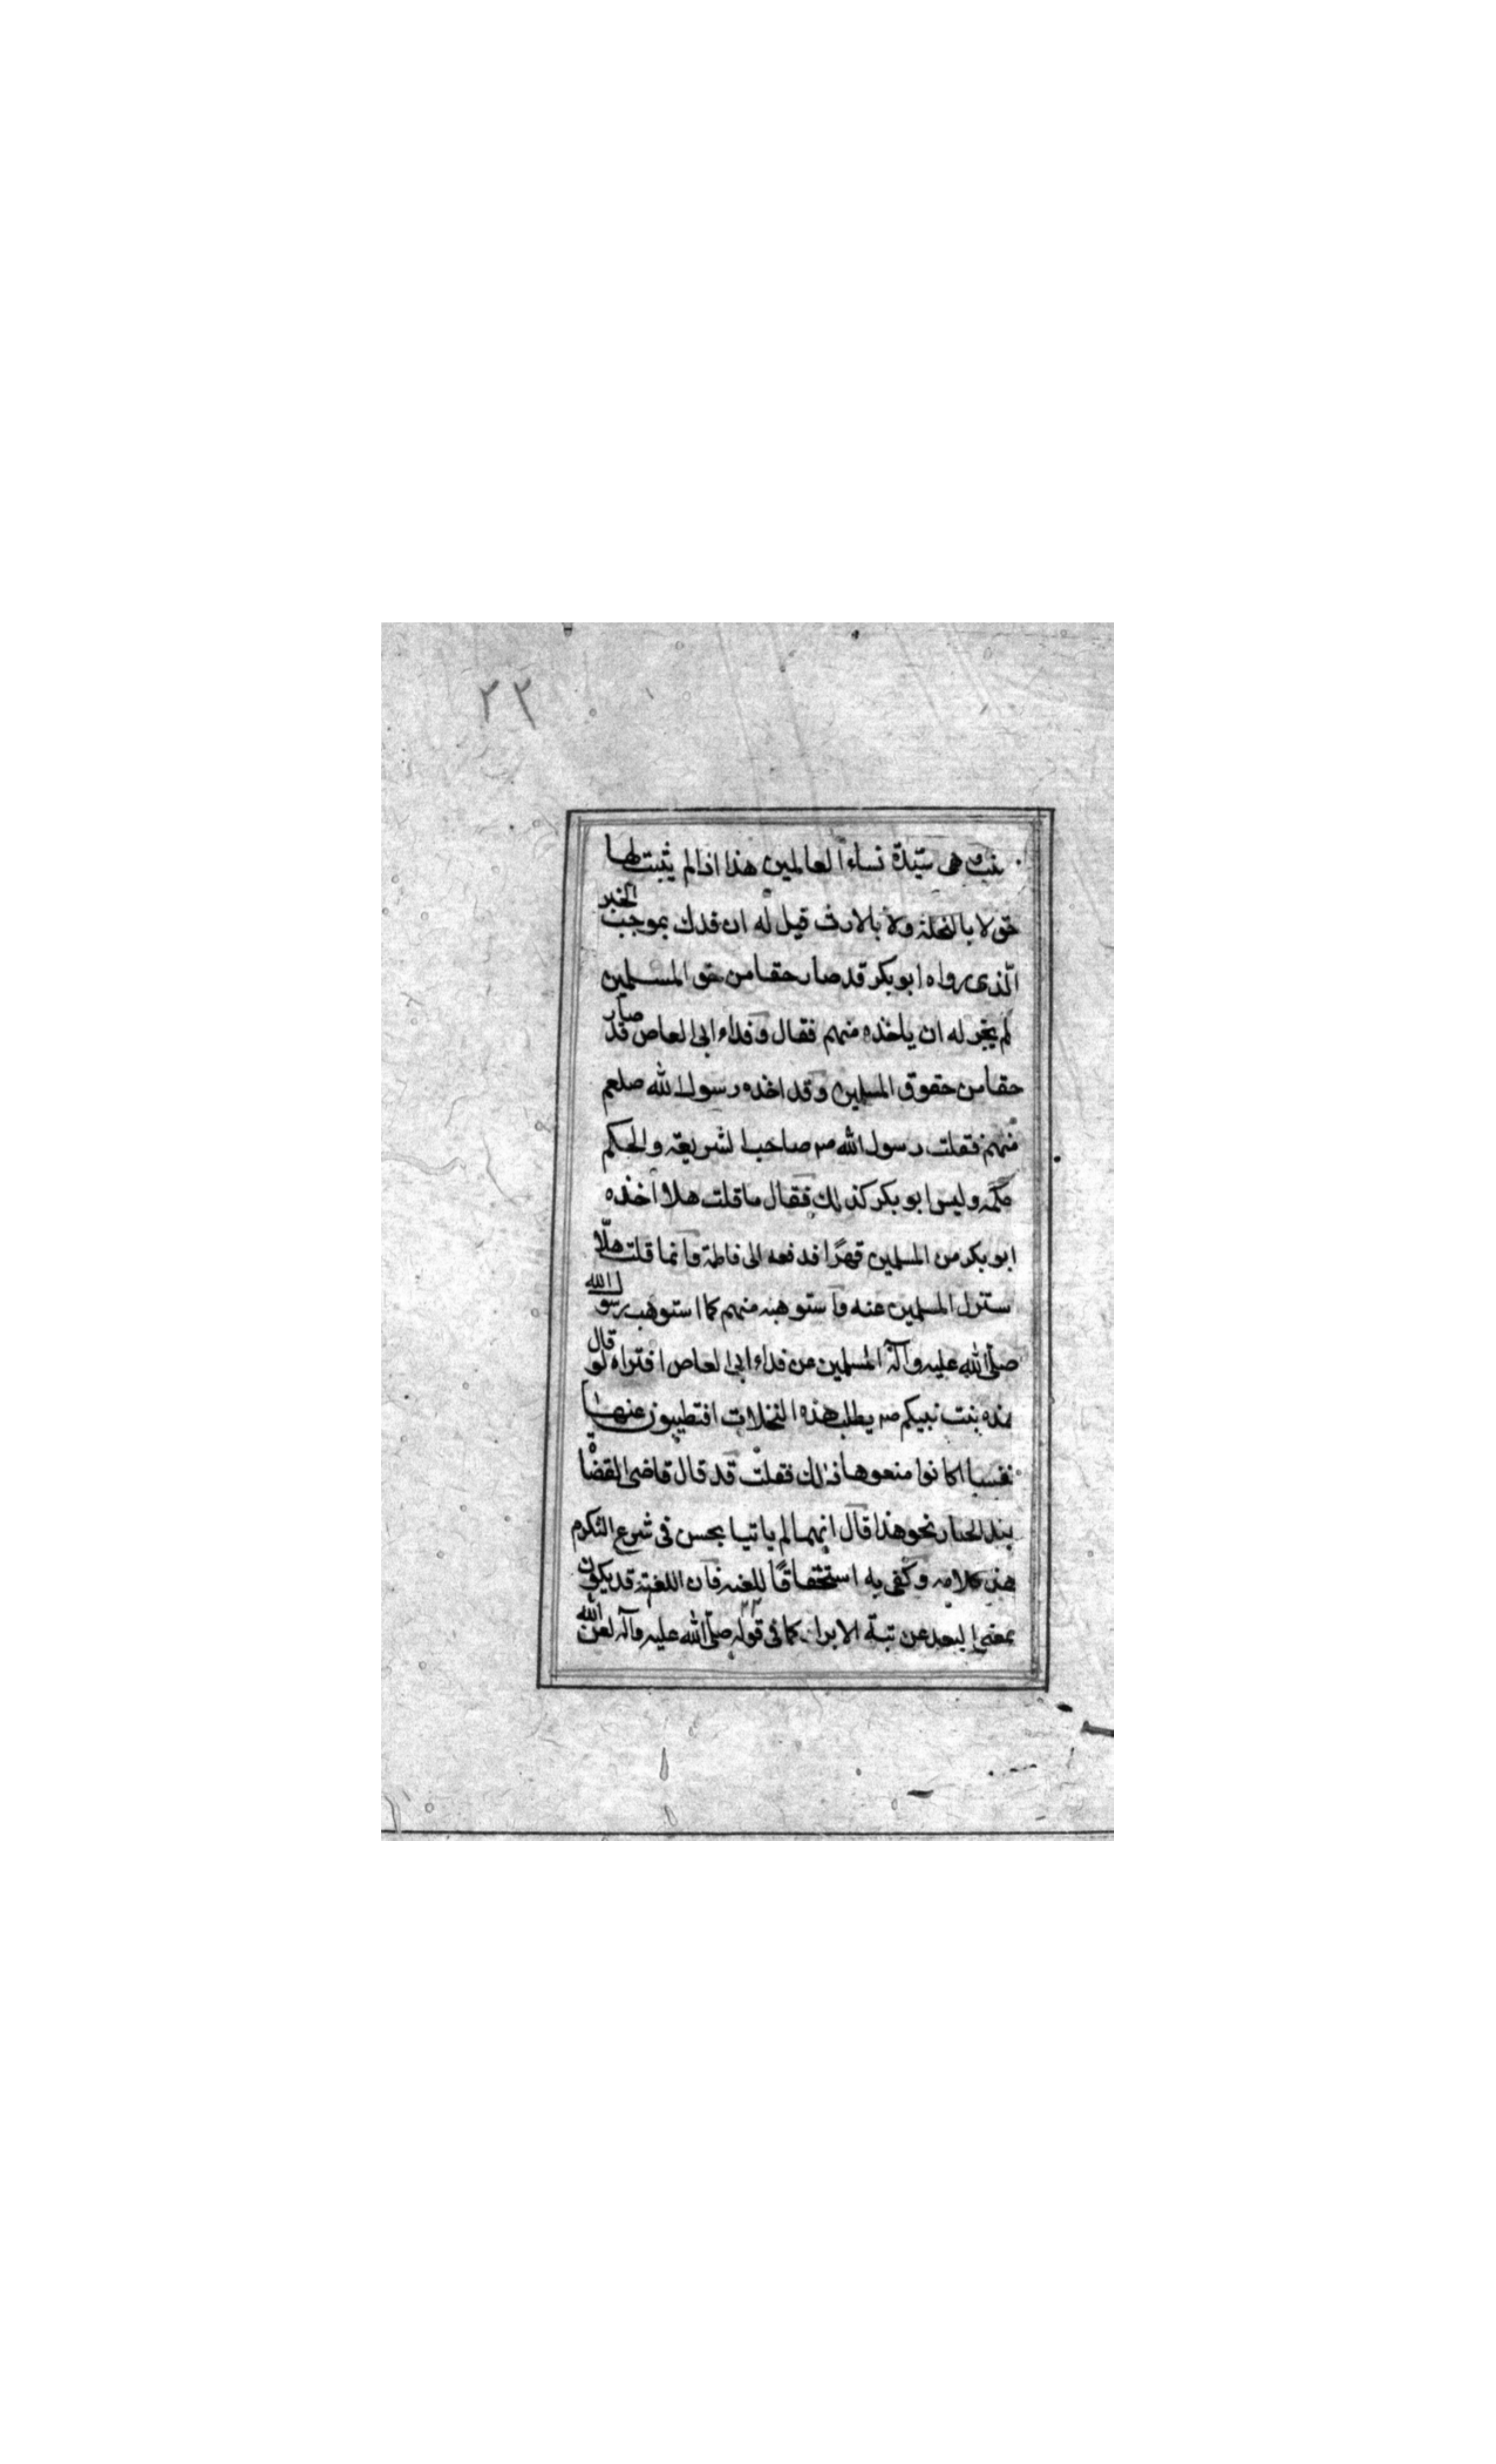 ٢٢
بنت هى سيّدة نساء العالمين هذا اذا لم يثبت لها
حق لا بالنحلة ولا بالارث قيل له ان فدك بموجب الخبر
الّذى رواه ابو بكر قد صار حقا من حق المسلمين
لم يجز له ان ياخذه منهم فقال وفداء ابى العاص قد صار
حقا من حقوق المسلمين وقد اخذه رسول الله صلعم
منهم فقلت رسول الله ص صاحب الشريعة والحكم
حكمه وليس ابو بكر كذلك فقال ما قلت هلا اخذه
ابو بكر من المسلمين قهرًا فدفعه الى فاطمة وانما قلت هلّا
ستنزل المسلمين عنه واستوهبه منهم كما استوهب رسول الله
صلّى الله عليه وآله المسلمين عن فداء ابى العاص افتراه لو قال
هذه بنت نبيكم ص يطلب هذه النخلات افتطيبون عنها
نفسا اكانوا منعوها ذلك فقلت قد قال قاضى القضاة
الجبار نحو هذا قال انهما لم ياتيا بحسن فى شرع التكرم
هذا كلامه وكفى به استحقاقًا للعنه فان اللعنة قد يكون
بمعنى البعد عن رتبة الابرار كما فى قوله صلّى الله عليه وآله لعن الله